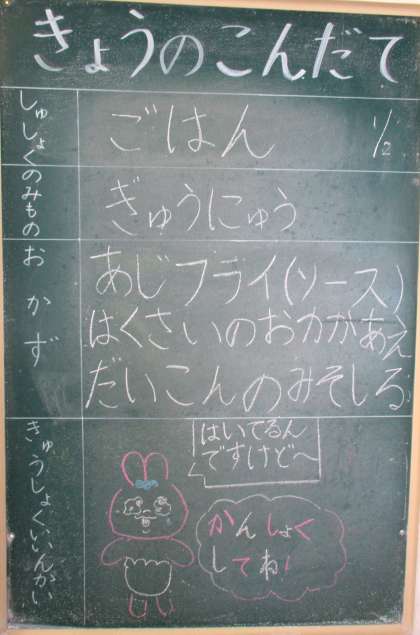 きょうのこんだて
しゅしょく
ごはん 1/2
のみもの
ぎゅうにゅう
おかず
あじフライ(ソース)
はくさいのおかかあえ
だいこんのみそしる
きゅうしょくいいんかい
はいてるん
ですけど～
かんしょく
してね!